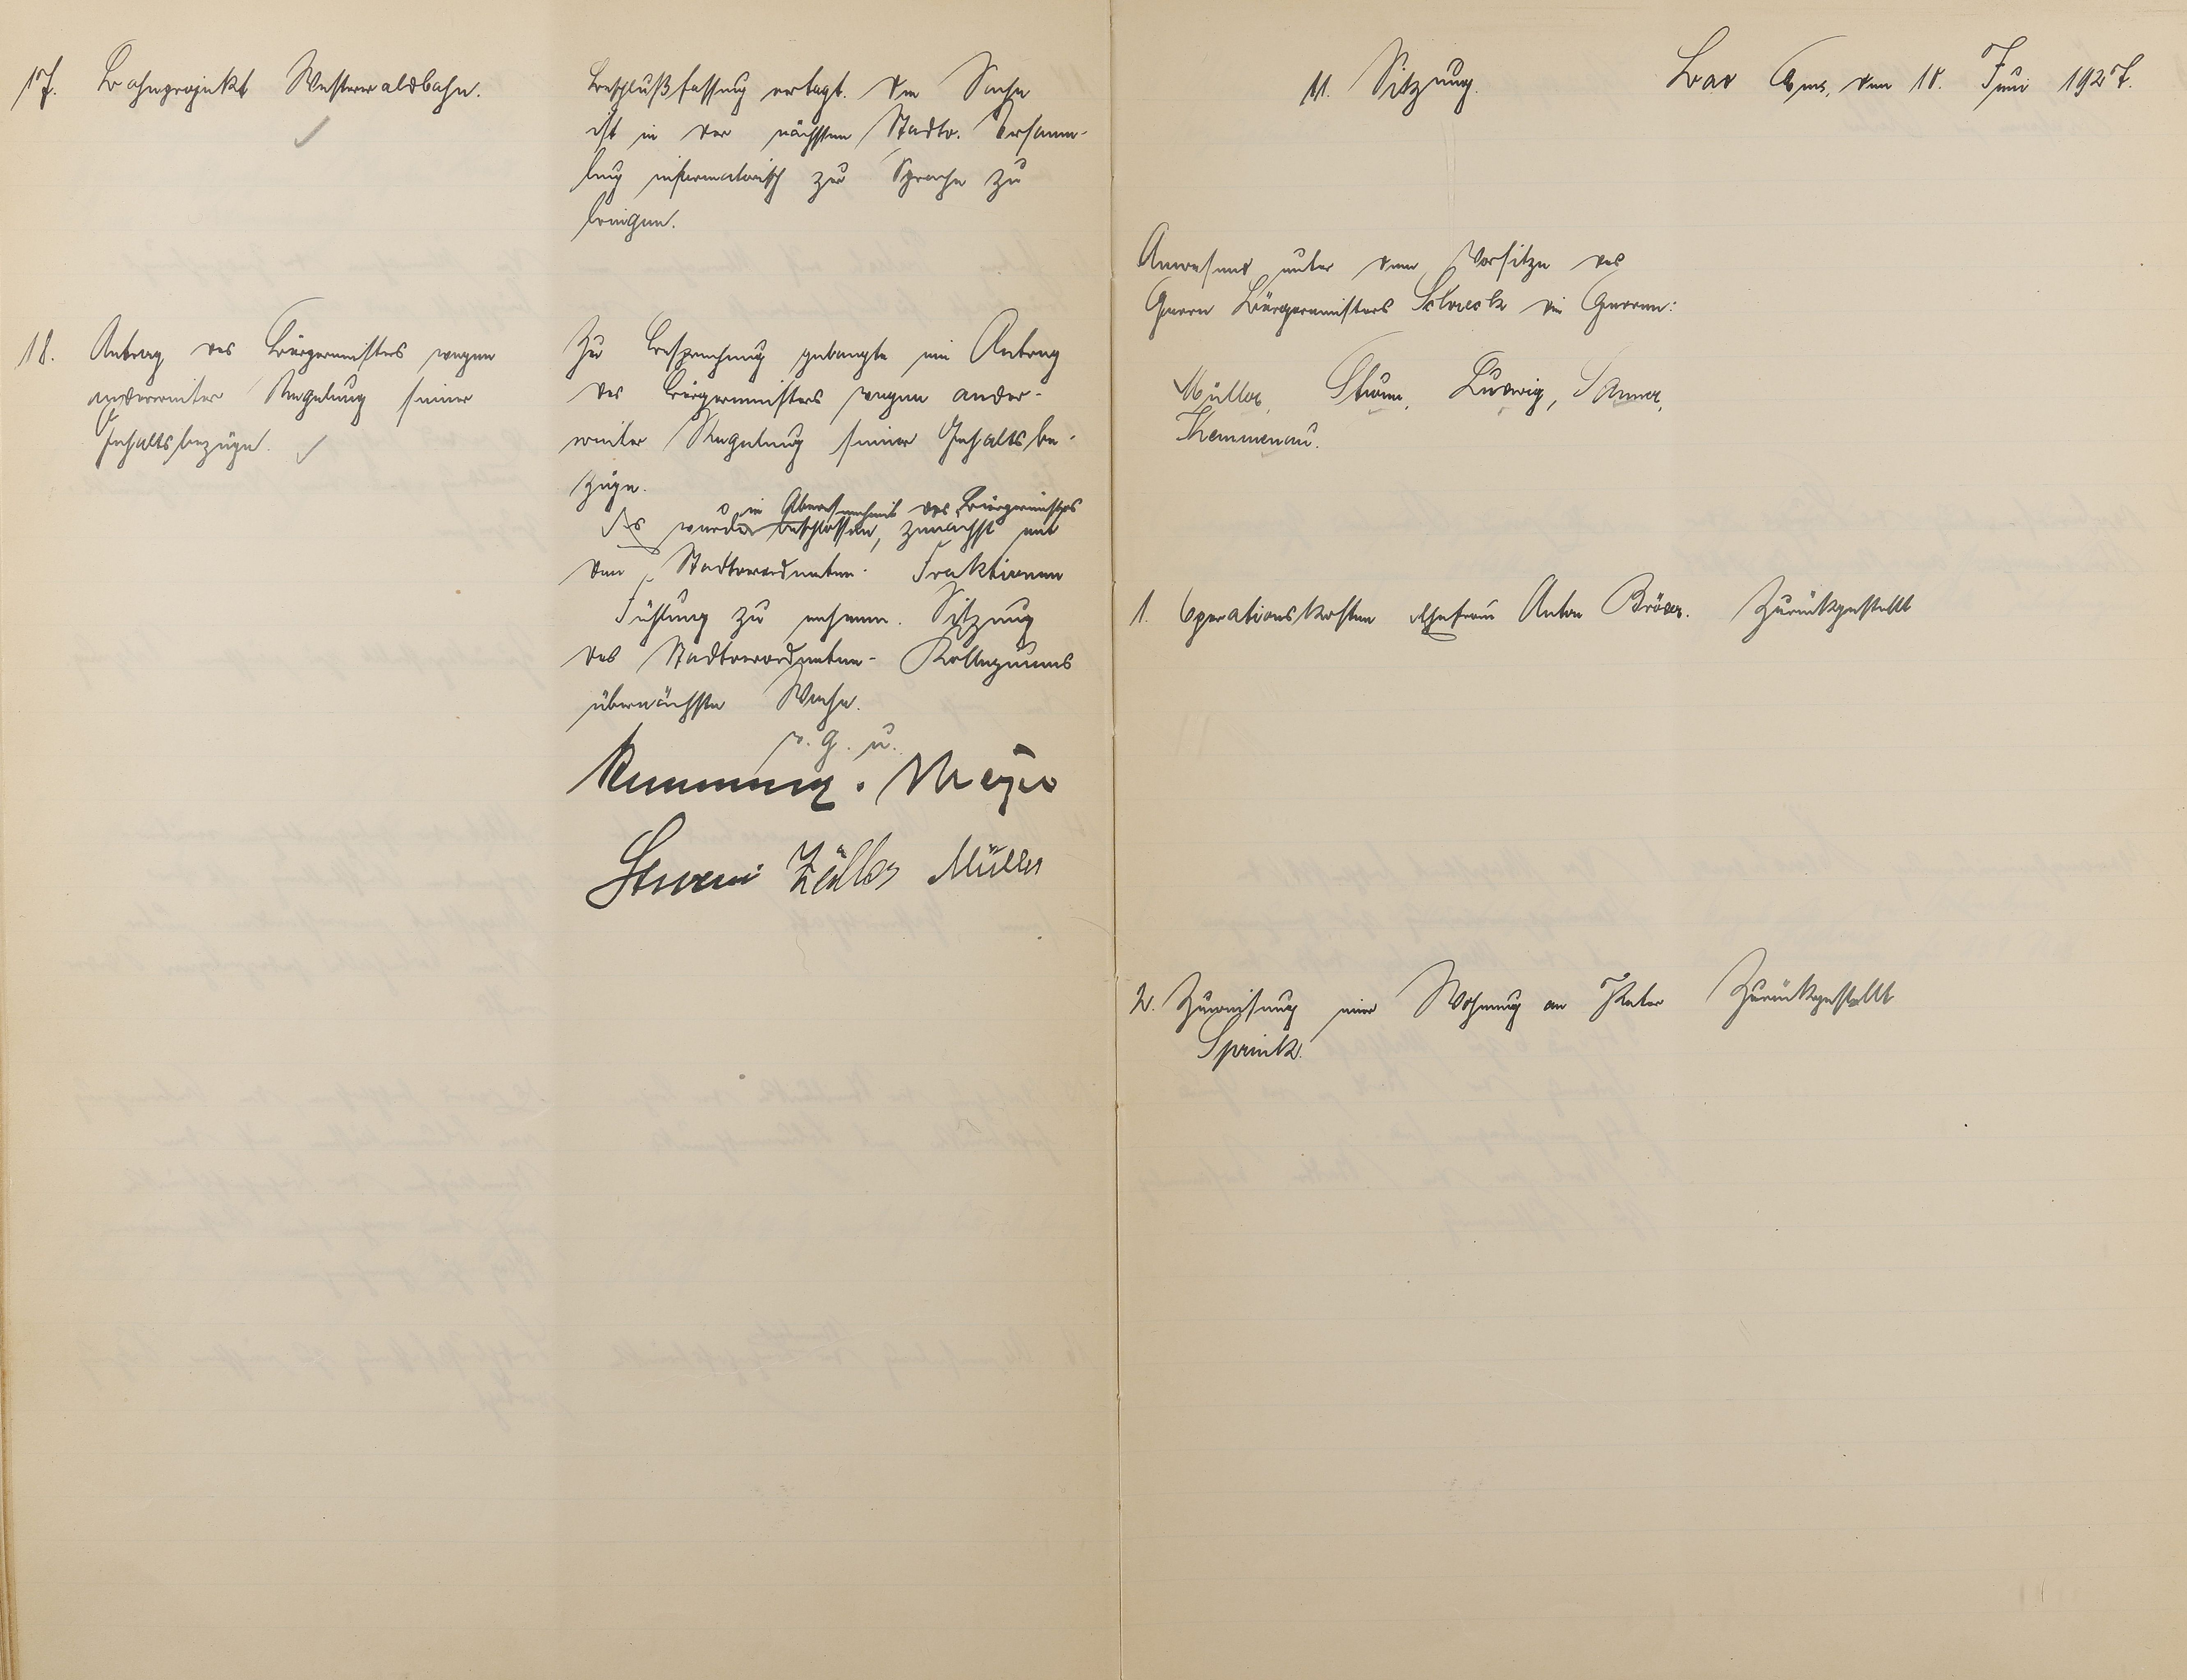 17. Bahnprojekt Westerwaldbahn.
Beschlußfassung vertagt. Die Sache
ist in der nächsten Stadtv. Versamm-
lung informatorisch zur Sprache zu
bringen.
18. Antrag des Bürgermeisters wegen
anderweiter Regelung seiner
Gehaltsbezüge.
Zur Besprechung gelangte ein Antrag
des Bürgermeisters wegen ander-
weiter Regelung seiner Gehaltsbe-
züge.
in Abwesenheit des Bürgermeisters
Es wurde beschlossen, zunächst mit
den Stadtverordneten-Fraktionen
Fühlung zu nehmen. Sitzung
des Stadtverordneten-Kollegiums
übernächste Woche.
v. g. u.
Meyer
Sturm Müller
11. Sitzung.
Bad Ems, den 18. Juni 1927.
Anwesend unter dem Vorsitze des
Herrn Bürgermeisters Schreck die Herren:
Müller, Sturm, Ludwig, Sommer,
Kemmenau.
1. Operationskosten Ehefrau Anton Bröder.
Zurückgestellt
2. Zuweisung einer Wohnung an Peter
Sprink.
Zurückgestellt